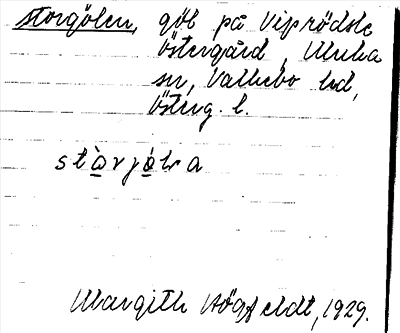 Storgölen, göl på Viprödsle
Östergård, Ulrika
sn, Vallebo hd,
Österg. l.
stàrjø̀lra
Margith Högfeldt, 1929.